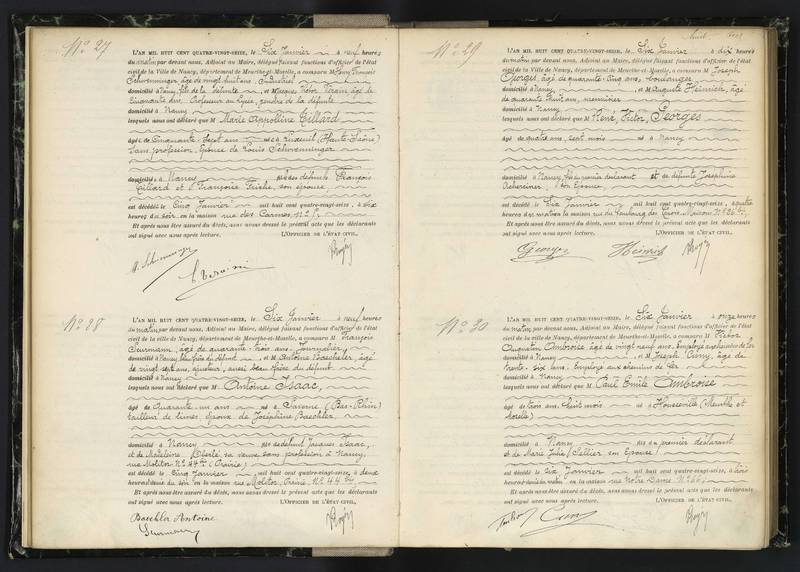 N° 27
L'AN MIL HUIT CENT QUATRE-VINGT-SEIZE, le Six Janvier à neuf heures
du matin par devant nous, Adjoint au Maire, délégué faisant fonctions d'officier de l'état
civil de la Ville de Nancy, département de Meurthe-et-Moselle, a comparu M Henry François
Schweninger, âgé de vingt huit ans,
domicilié à Nancy, fils de la défunte, et M Jacques Victor âgé de
Cinquante deux, Professeur au Lycée, gendre de la défunte
domicilié à Nancy
lesquels nous ont déclaré que M Marie Appolline Tillard
âgé e de Cinquante Sept ans né e à (Haute Saône)
Sans profession, Epouse de Louis Schweninger
domicilié e à Nancy des défunts François
Tillard et de Françoise son épouse,
est décédé e le Cinq Janvier mil huit cent quatre-vingt-seize, à dix
heures du soir en la maison rue des Carmes, N°
Et après nous être assuré du décès, nous avons dressé le présent acte que les déclarants
ont signé avec nous après lecture. L'OFFICIER DE L'ÉTAT CIVIL,
N° 28
L'AN MIL HUIT CENT QUATRE-VINGT-SEIZE, le Six Janvier à neuf heures
du matin par devant nous, Adjoint au Maire, délégué faisant fonctions d'officier de l'état
civil de la ville de Nancy, département de Meurthe-et-Moselle, a comparu M François
âgé de quarante trois ans, Journalier,
domicilié à Nancy, beau frère du défunt, et M Antoine Baechler, âgé
de vingt sept ans, ajusteur, aussi beau frère du défunt
domicilié à Nancy
lesquels nous ont déclaré que M Antoine Isaac,
âgé de Quarante un ans né à Saverne (Bas-Rhin)
tailleur de limes, époux de Joséphine Baechler
domicilié à Nancy fils de défunt Jacques Isaac,
et de Madeleine Oberlé sa veuve sans profession à Nancy,
rue Molitor N° 44 (Prairie)
est décédé le Cinq Janvier mil huit cent quatre-vingt-seize, à deux
heures du soir en la maison rue Molitor, Prairie N° 44
Et après nous être assuré du décès, nous avons dressé le présent acte que les déclarants
ont signé avec nous après lecture. L'OFFICIER DE L'ÉTAT CIVIL,
Baechler Antoine
N° 29
L'AN MIL HUIT CENT QUATRE-VINGT-SEIZE, le Six Janvier à dix heures
du matin par devant nous, Adjoint au Maire, délégué faisant fonctions d'officier de l'état
civil de la Ville de Nancy, département de Meurthe-et-Moselle, a comparu M Joseph
Georges, âgé de quarante cinq ans, boulanger
domicilié à Nancy, et M Auguste Heinrich, âgé
de quarante huit ans, menuisier
domicilié à Nancy
lesquels nous ont déclaré que M René, Victor, Georges
âgé de quatre ans, sept mois né à Nancy
domicilié à Nancy, fils du premier déclarant et de défunte Joséphine
son épouse,
est décédé le Six Janvier mil huit cent quatre-vingt-seize, à quatre
heures du matin en la maison rue du Faubourg des Trois Maisons N° 66
Et après nous être assuré du décès, nous avons dressé le présent acte que les déclarants
ont signé avec nous après lecture. L'OFFICIER DE L'ÉTAT CIVIL,
Georges Heinrich
N° 30
L'AN MIL HUIT CENT QUATRE-VINGT-SEIZE, le Six Janvier à onze heures
du matin par devant nous, Adjoint au Maire, délégué faisant fonctions d'officier de l'état
civil de la ville de Nancy, département de Meurthe-et-Moselle, a comparu M Victor
Auguste Ambroise âgé de vingt neuf ans, Employé aux chemins de fer
domicilié à Nancy, et M Joseph Cuny, âgé de
trente six ans, Employé aux chemins de fer
domicilié à Nancy
lesquels nous ont déclaré que M Paul Emile Ambroise
âgé de trois ans, huit mois né à Housséville (Meurthe et
Moselle)
domicilié à Nancy fils du premier déclarant
et de Marie Julie son Epouse
est décédé le Six Janvier mil huit cent quatre-vingt-seize, à trois
heures du matin en la maison rue Notre Dame N° 66
Et après nous être assuré du décès, nous avons dressé le présent acte que les déclarants
ont signé avec nous après lecture. L'OFFICIER DE L'ÉTAT CIVIL,
Cuny